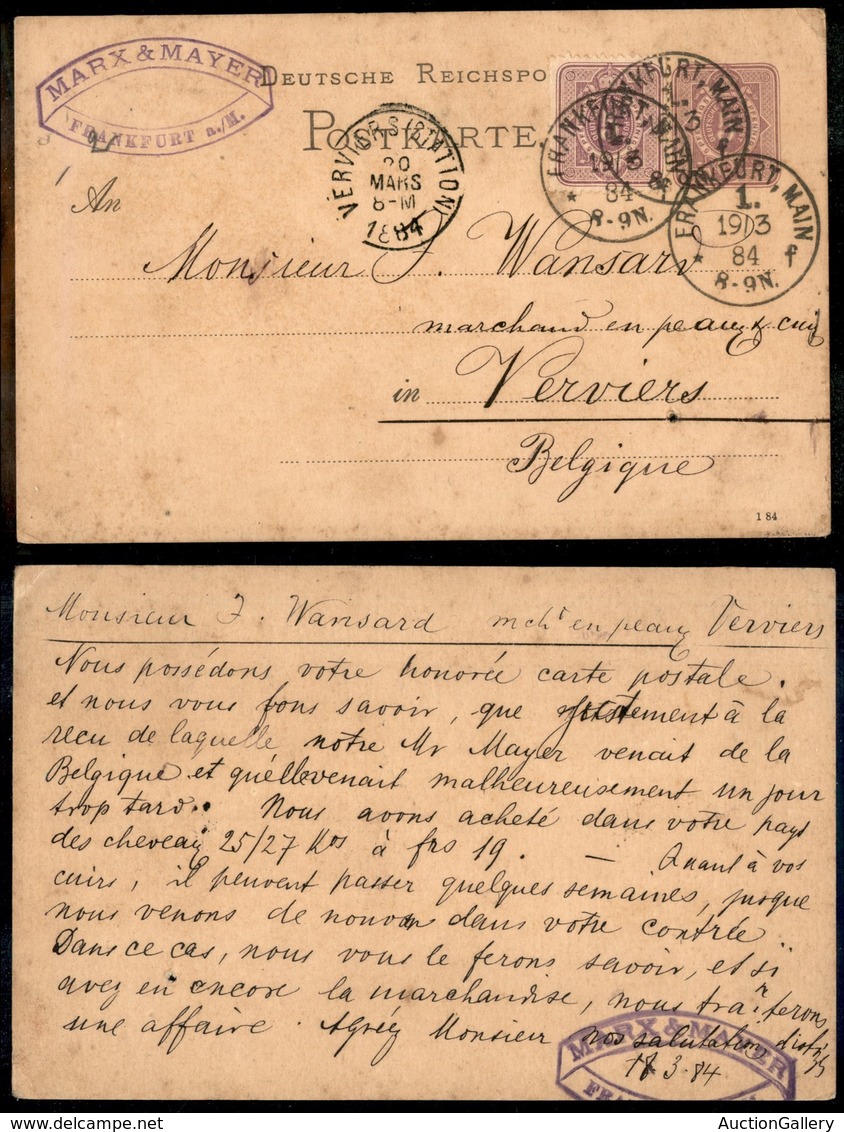 MARX & MAYER
FRANKFURT a./M.
DEUTSCHE REICHSPO
POSTKARTE
FRANKFURT, MAIN
FRANKFURT, MAIN
1.
19/3
84
8-9N.
FRANKFURT, MAIN
1.
19/3
84 f
8-9N.
VERVIERS (STATION)
20
MARS
8-M
1884
An
Monsieur J. Wansard
marchand en peaux & cuirs
in Verviers
Belgique
1 84
Monsieur J. Wansard mcht en peaux Verviers
Nous possédons votre honorée carte postale.
et nous vous fons savoir, que justement à la
recu de laquelle notre Mr Mayer venait de la
Belgique et qu'elle venait malheureusement un jour
trop tard. Nous avons acheté dans votre pays
des cheveaux 25/27 Kos à frs 19. — Quant à vos
cuirs, il peuvent passer quelques semaines, jusque
nous venons de nouveau dans votre contrée
Dans ce cas, nous vous le ferons savoir, et si
avez en encore la marchandise, nous traiterons
une affaire. Agréez Monsieur nos salutations
18 3. 84
MARX & MAYER
AuctionGallery